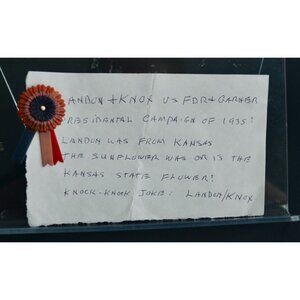 ANDON + KNOX VS FDR + GARNER
RESIDENTAL CAMPAIGN OF 1935!
LANDON WAS FROM KANSAS
THE SUNFLOWER WAS OR IS THE
KANSAS STATE FLOWER!
KNOCK-KNOCK JOKE: LANDON/KNOX